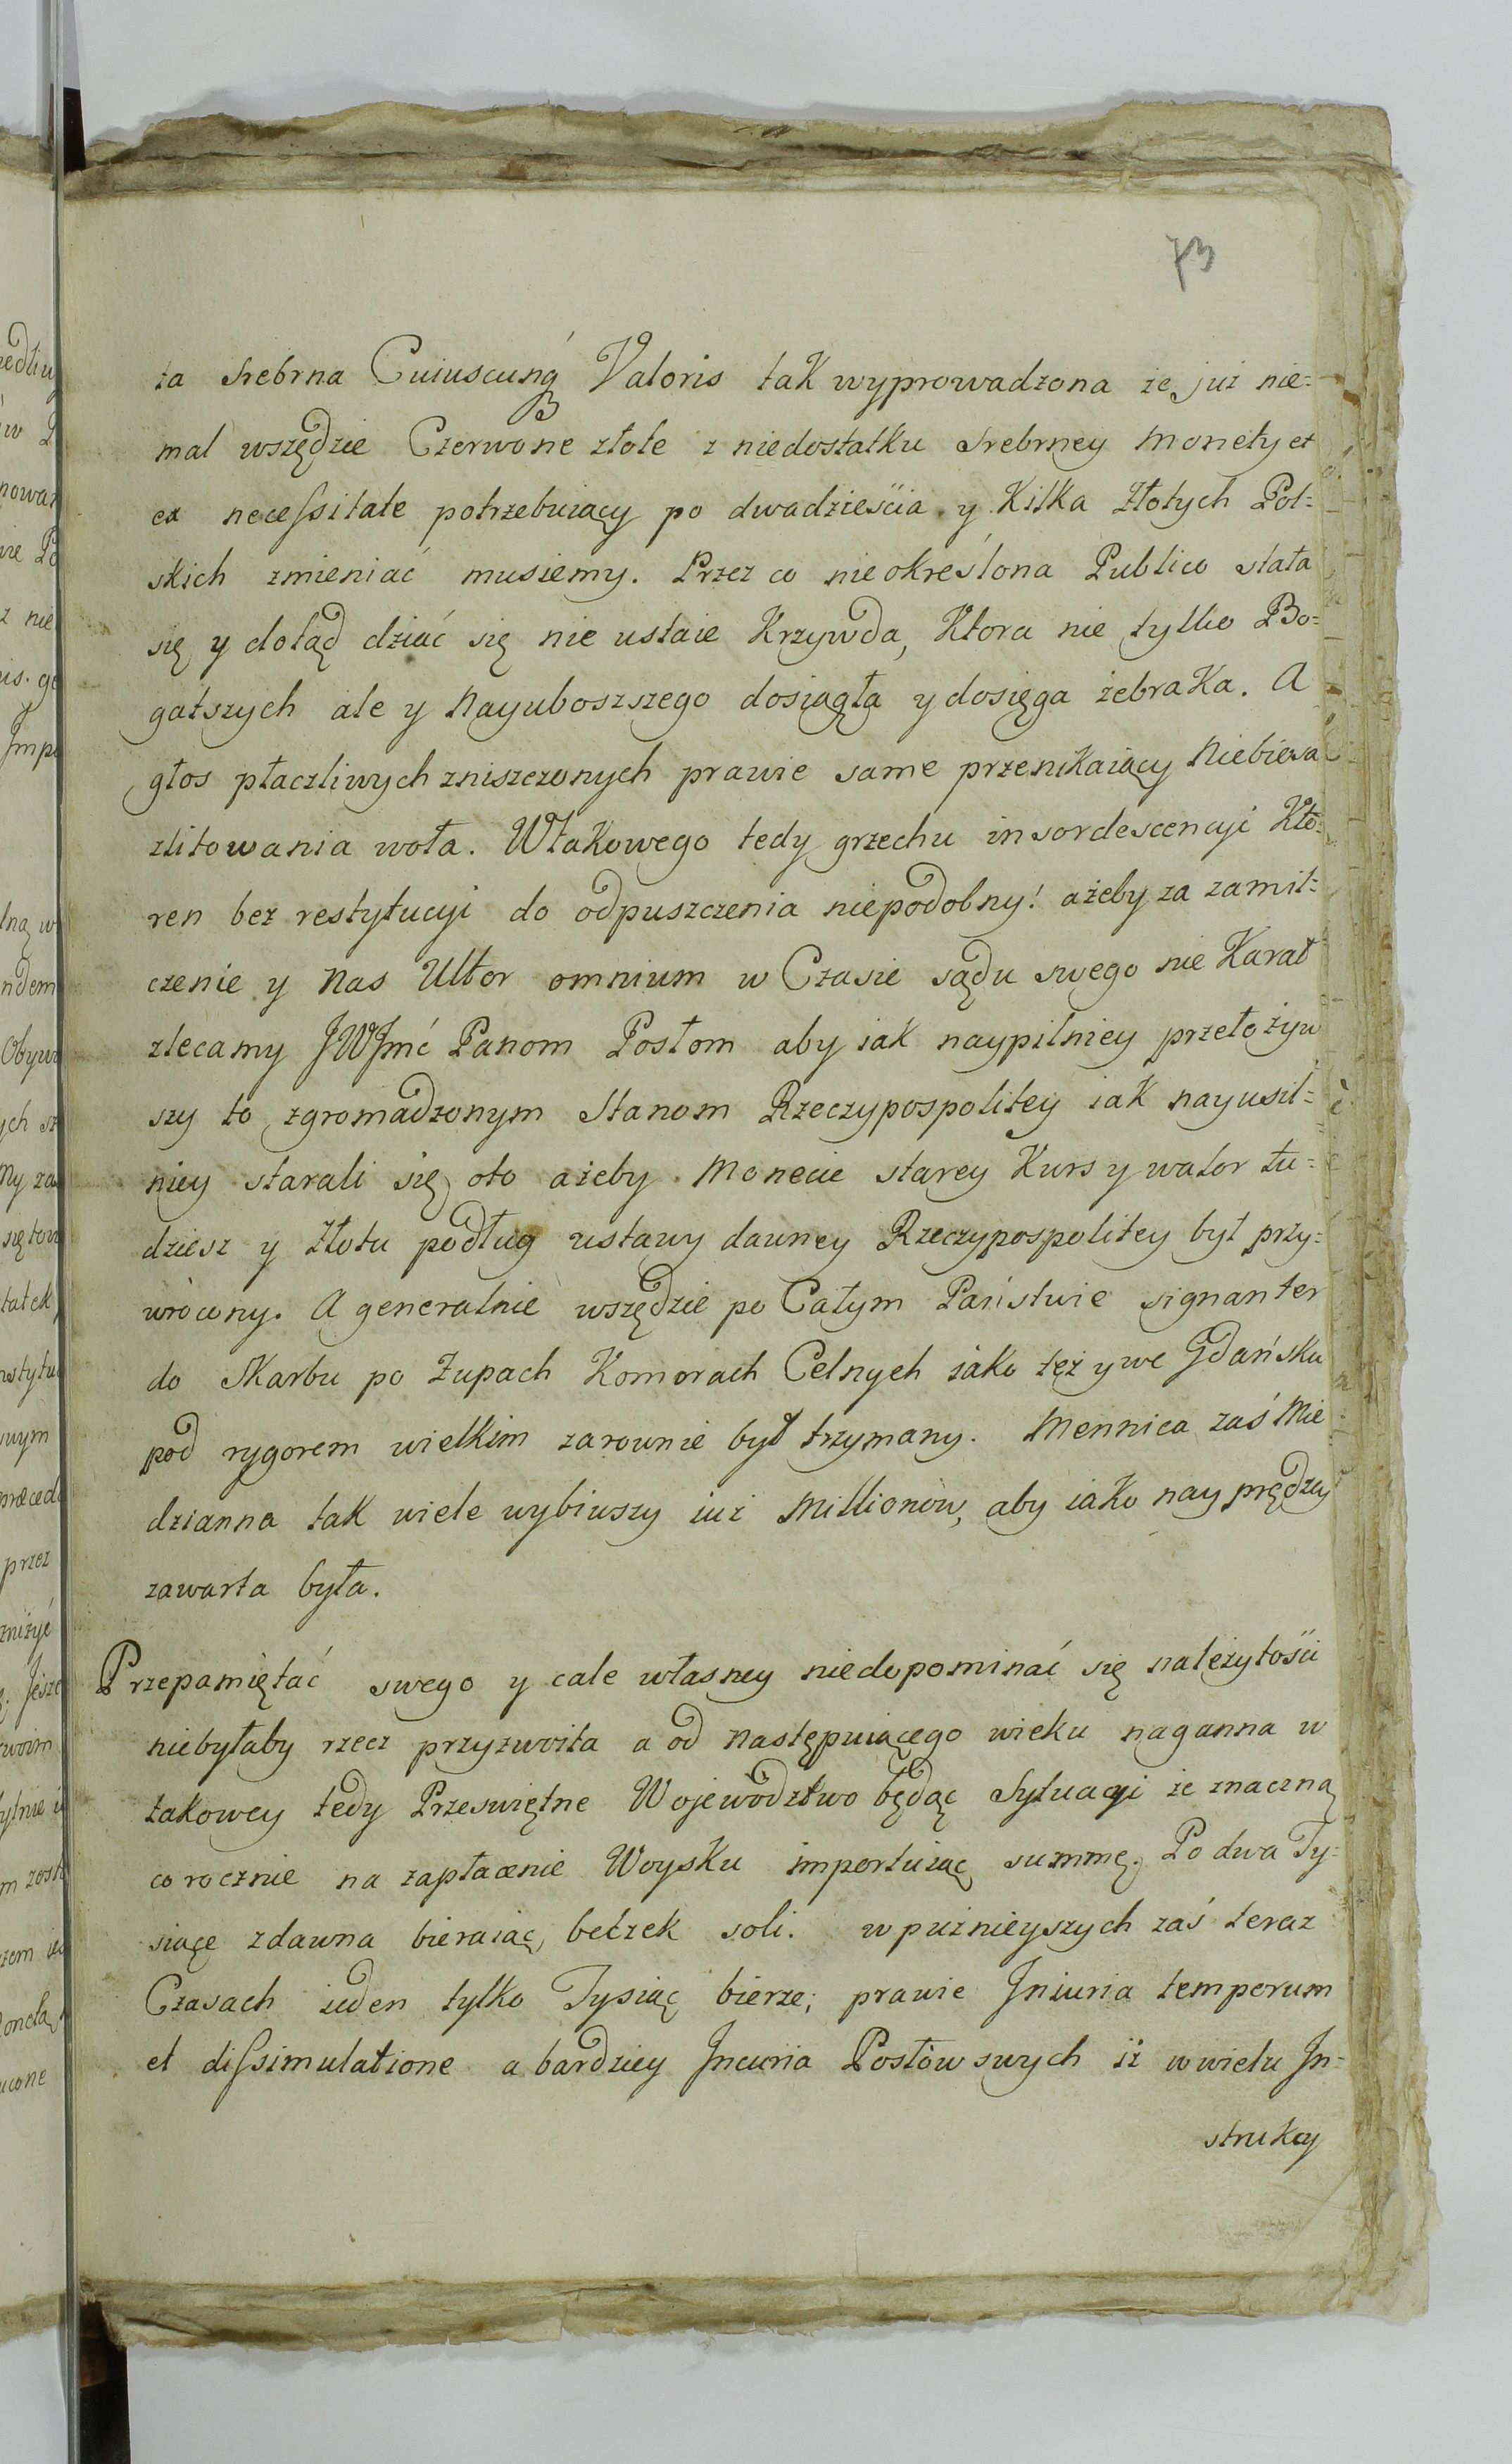 73
ta srebrna Cuiuscunq Valoris tak wyprowadzona że już nie=
mal wszędzie Czerwone złote z niedostatku srebrney Monety et
ex necessitate potrzebuiący po dwadzieścia y Kilka Złotych Pol=
skich zmieniać musiemy. Przez co nieokreślona Publico stała
się y dotąd dziać się nie ustaie Krzywda, Ktora nie tylko Bo=
gatszych ale y Nayuboszszego dosiągła y dosięga żebraka. A
głos płaczliwych zniszczonych prawie same przenikaiący Niebiosa
zlitowania woła. W takowego tedy grzechu insordescencyi Kto=
ren bez restytucyi do odpuszczenia niepodobny! ażeby za zamil=
czenie y Nas Ultor omnium w Czasie sądu swego nie Karał
zlecamy JWJmć Panom Posłom aby iak naypilniey przełożyw
szy to zgromadzonym Stanom Rzeczypospolitey iak nayusil=
niey starali się oto ażeby Monecie starey Kurs y walor tu=
dziesz y Złotu podług ustawy dawney Rzeczypospolitey był przy=
wrócony. A generalnie wszędzie po Całym Państwie signanter
do Skarbu po Żupach Komorach Celnych iako też y we Gdańsku
pod rygorem wielkim zarownie był trzymany. Mennica zaś Mie
dzianna tak wiele wybiwszy iuż Millionów, aby iako nayprędzey
zawarta była.
Przepamiętać swego y cale własney niedopominać się należytości
niebyłaby rzecz przyzwoita a od Następuiącego wieku naganna w
takowey tedy Przeswiętne Województwo będąc Sytuacyi że znaczną
corocznie na zapłacenie Woysku importuiąc summę. Po dwa Ty=
siące zdawna bieraiąc, beczek soli. w puznieyszych zaś teraz
Czasach ieden tylko Tysiąc bierze; prawie Jniuria temporum
et dissimulatione a bardziey Jncuria Posłów swych iż w wielu Jn=
strukcy